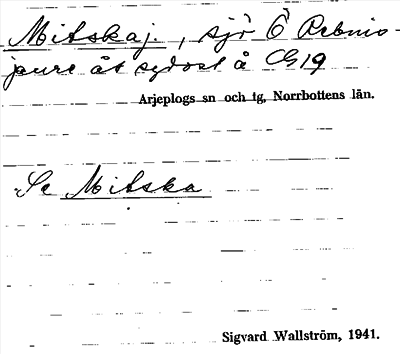 Mitskaj., sjö Ö Rebnis-
jaure åt sydost å CG19
Arjeplogs sn och tg, Norrbottens län.
Se Mitska
Sigvard Wallström, 1941.